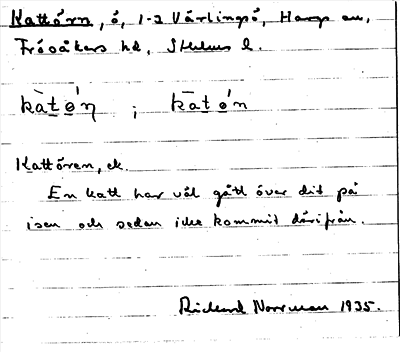 Kattörn, ö, 1-2 Värlingsö, Hargs sn,
Frösåkers hd, Sthlms l.
kàtǝ́n ; kātǝ́n
Kattören, ek.
En katt har väl gått över dit på
isen och sedan icke kommit därifrån.
Rickard Norrman 1935.